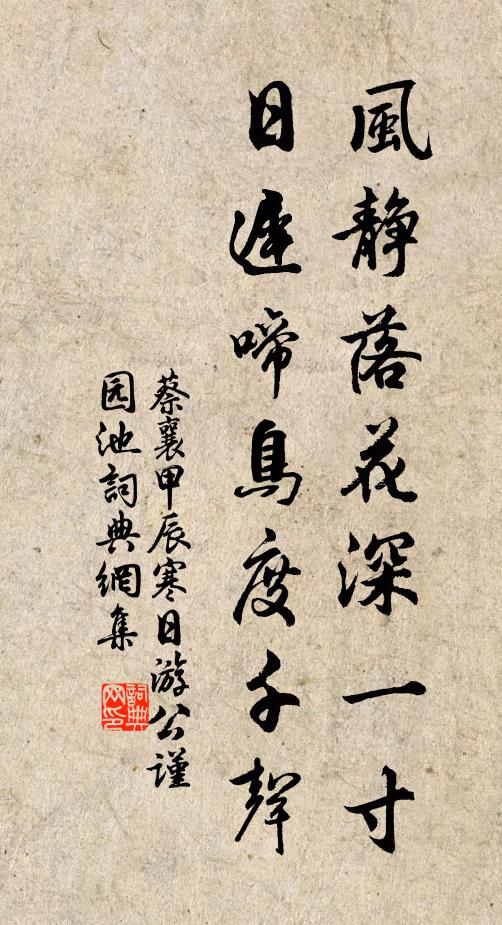 風静落花深一寸
日遲啼鳥度千聲
蔡襄甲辰寒日游公謹
园池詞典網集
詞典
网印